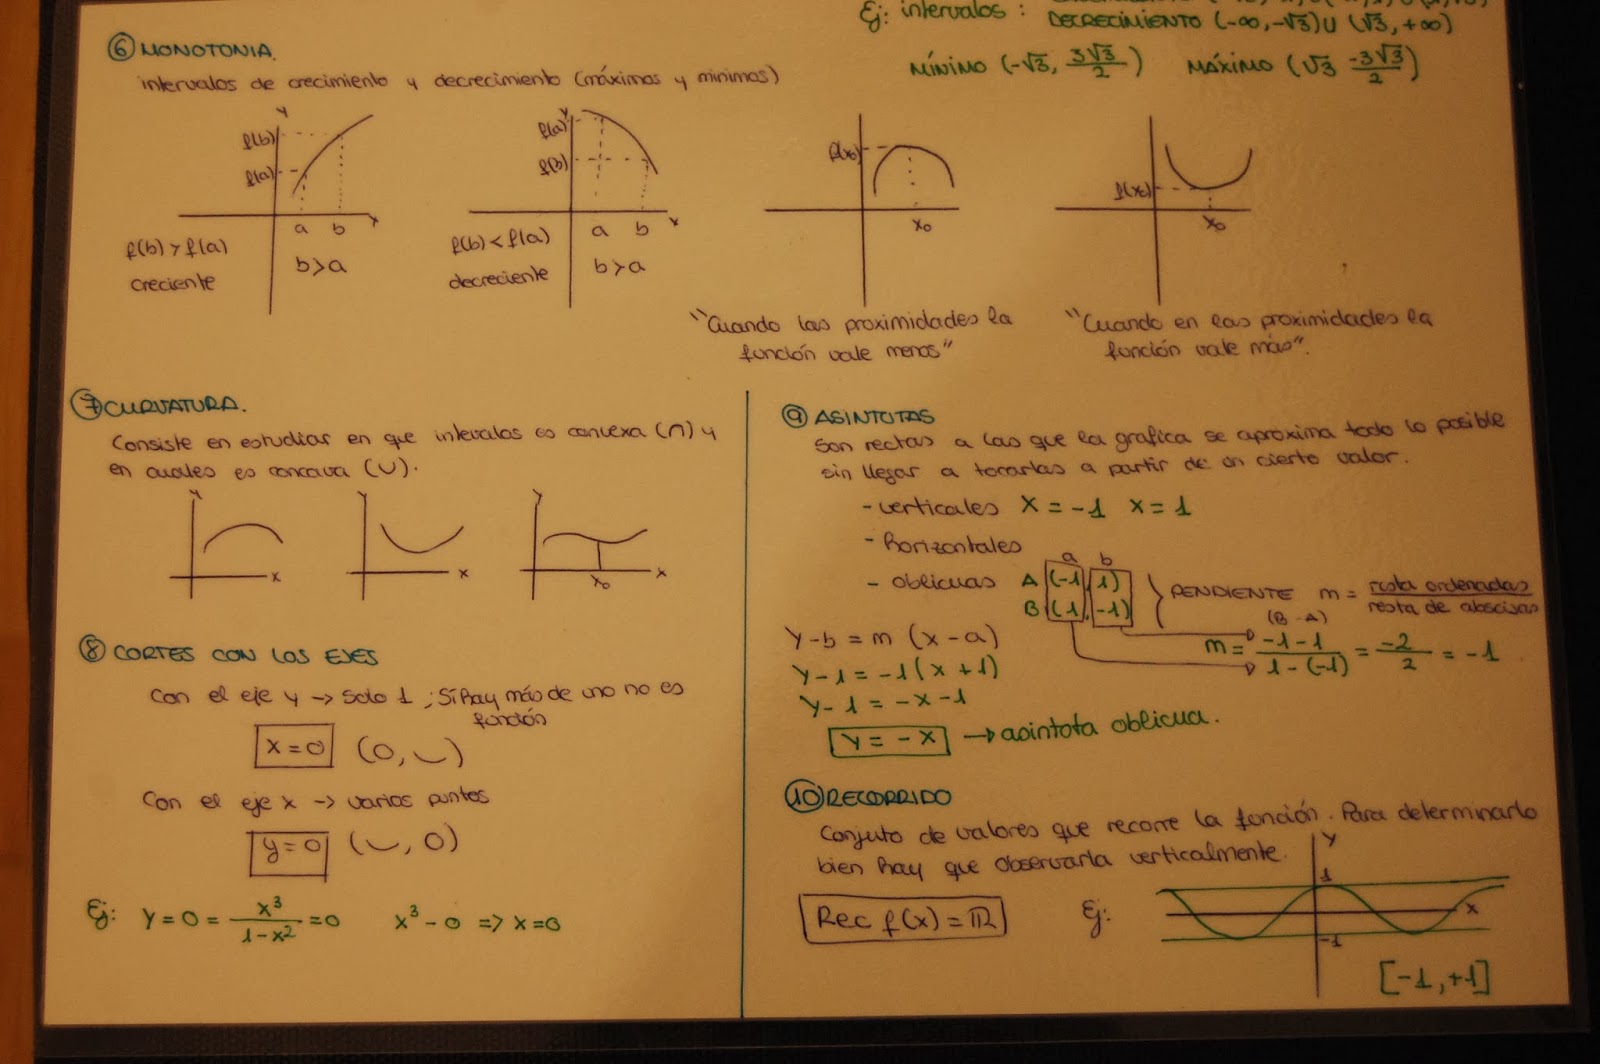 Ej: intervalos:
DECRECIMIENTO (-∞, -√3) ∪ (√3, +∞)
MÍNIMO (-√3, 3√3/2) MÁXIMO (√3 -3√3/2)
⑥ MONOTONIA.
intervalos de crecimiento y decrecimiento (máximos y minimos)
y
f(b)
f(a)
a b x
f(b) > f(a)
creciente
b>a
y
f(a)
f(b)
a b x
f(b) < f(a)
decreciente
b>a
f(x₀)
x₀
"Cuando las proximidades la
función vale menos"
f(x₀)
x₀
"Cuando en las proximidades la
función vale más".
⑦ CURVATURA.
Consiste en estudiar en que intevalos es convexa (∩) y
en cuales es concava (∪).
y x
y x
y x₀ x
⑧ CORTES CON LOS EJES
Con el eje y → Solo 1 ; Si hay más de uno no es
función
x=0 (0, ‿)
Con el eje x → varios puntos
y=0 (‿, 0)
Ej: y=0 = x³/1-x² =0 x³-0 => x=0
⑨ ASINTOTAS
Son rectas a las que la grafica se aproxima todo lo posible
sin llegar a tocarlas a partir de un cierto valor.
- verticales x = -1 x = 1
- horizontales
- oblicuas
a b
A (-1, 1)
B (1, -1)
PENDIENTE m = resta ordenadas/resta de abscisas
(B - A)
m = -1-1/1-(-1) = -2/2 = -1
y-b = m (x-a)
y-1 = -1(x+1)
y-1 = -x-1
y = -x → asintota oblicua.
⑩ RECORRIDO
Conjuto de valores que recorre la función. Para determinarlo
bien hay que observarla verticalmente.
Rec f(x) = ℝ
Ej:
y
1
x
-1
[-1, +1]